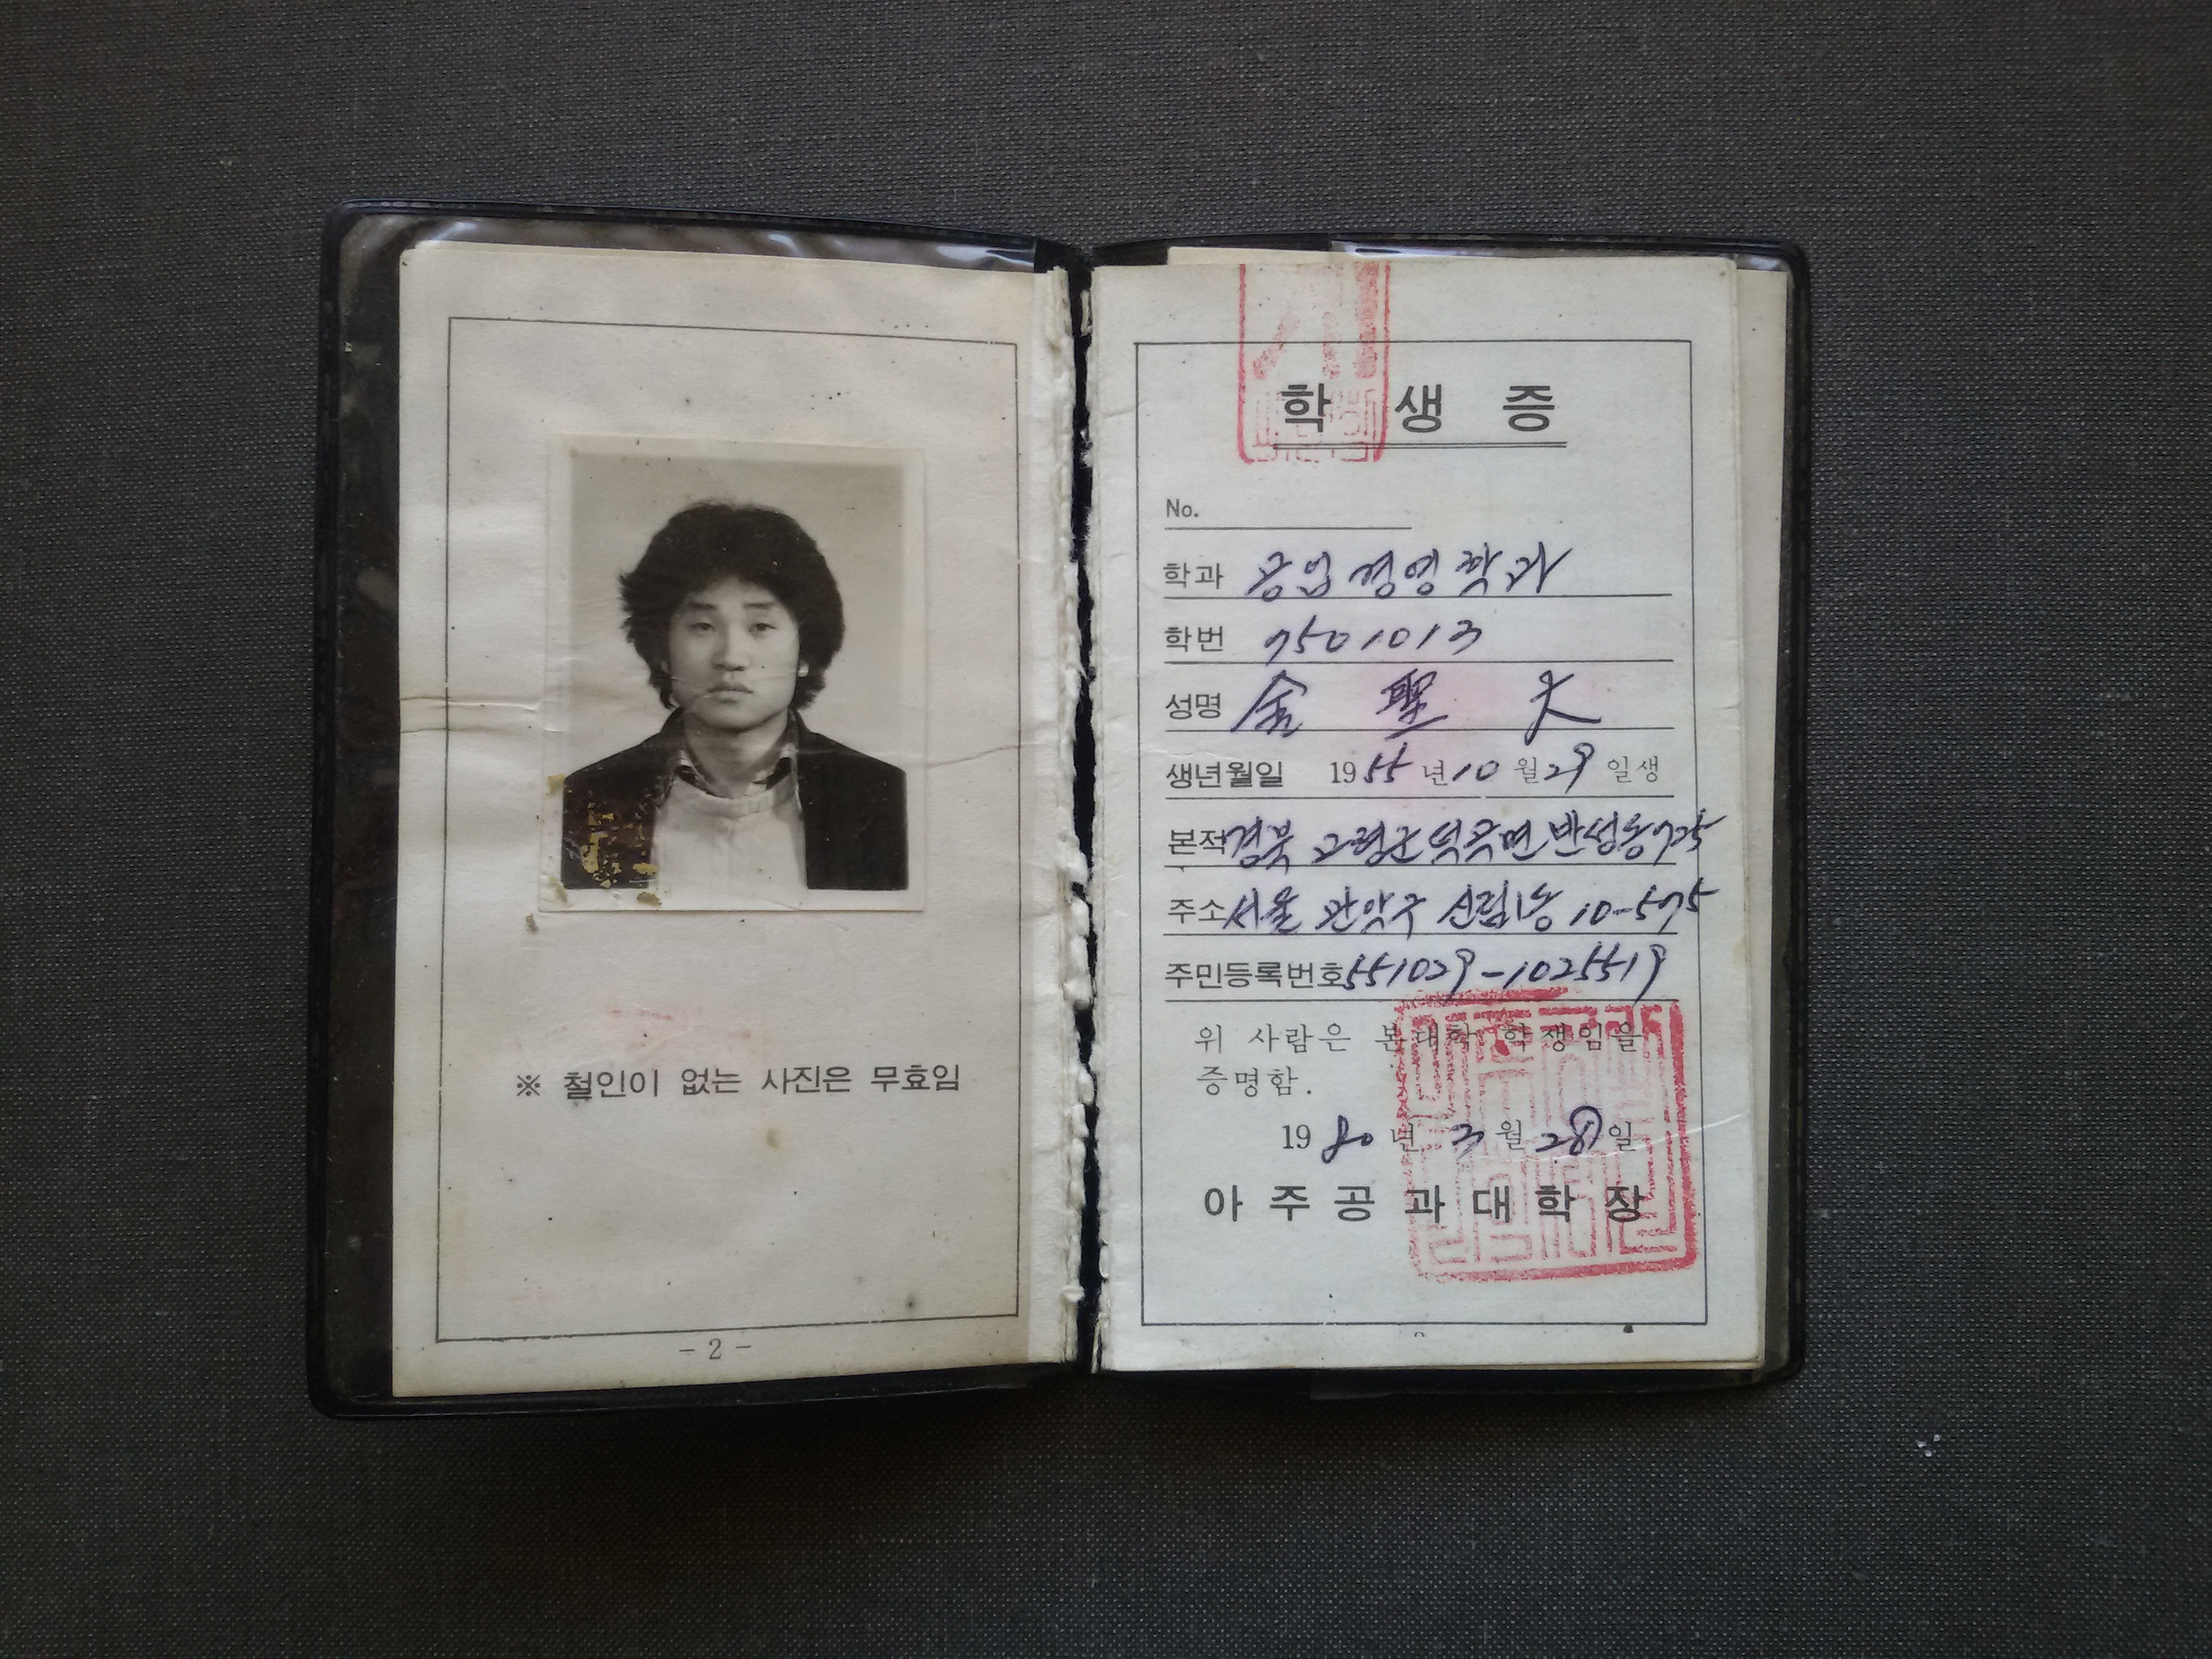 ※ 철인이 없는 사진은 무효임
- 2 -
학 생 증
No.
학과 공업경영학과
학번 7501013
성명 金 聖 大
생년월일 1955년 10월 29일생
본적 경북 고령군 덕곡면 반성동 725
주소 서울 관악구 신림1동 10-575
주민등록번호 551029-1025519
위 사람은 본대학 학생임을
증명함.
1980년 3월 28일
아주공과대학장